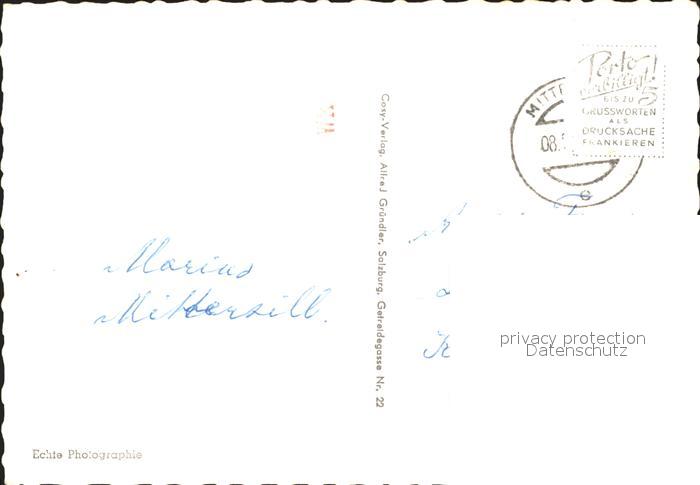 Porto
verbilligt!
5
BIS ZU
GRUSSWORTEN
ALS
DRUCKSACHE
FRANKIEREN
MITT
08.
c
Cosy-Verlag, Alfred Gründler, Salzburg, Getreidegasse Nr. 22
Marius
Mittersill.
privacy protection
Datenschutz
Echte Photographie